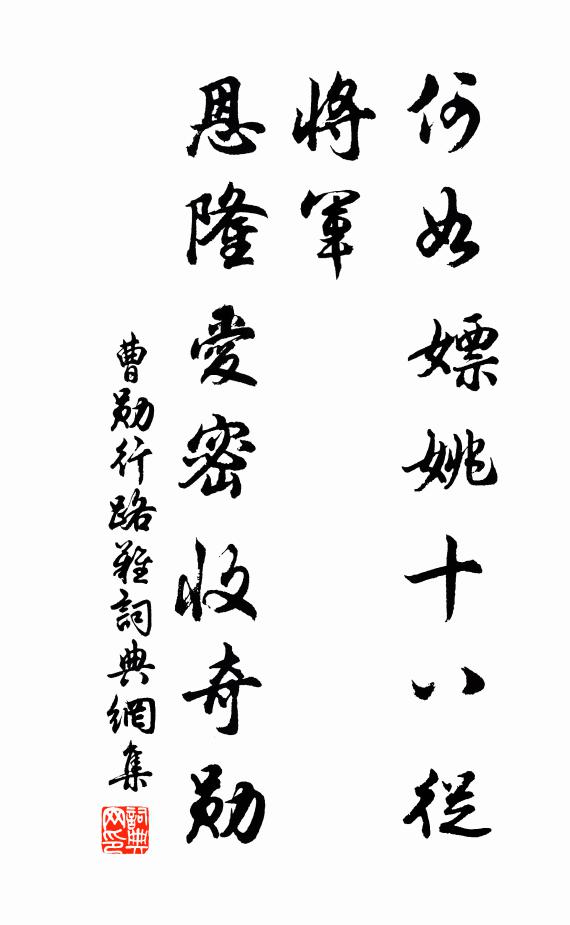 何如嫖姚十八從
將軍
恩隆愛密收奇勛
曹勛行路難詞典網集
詞典網印